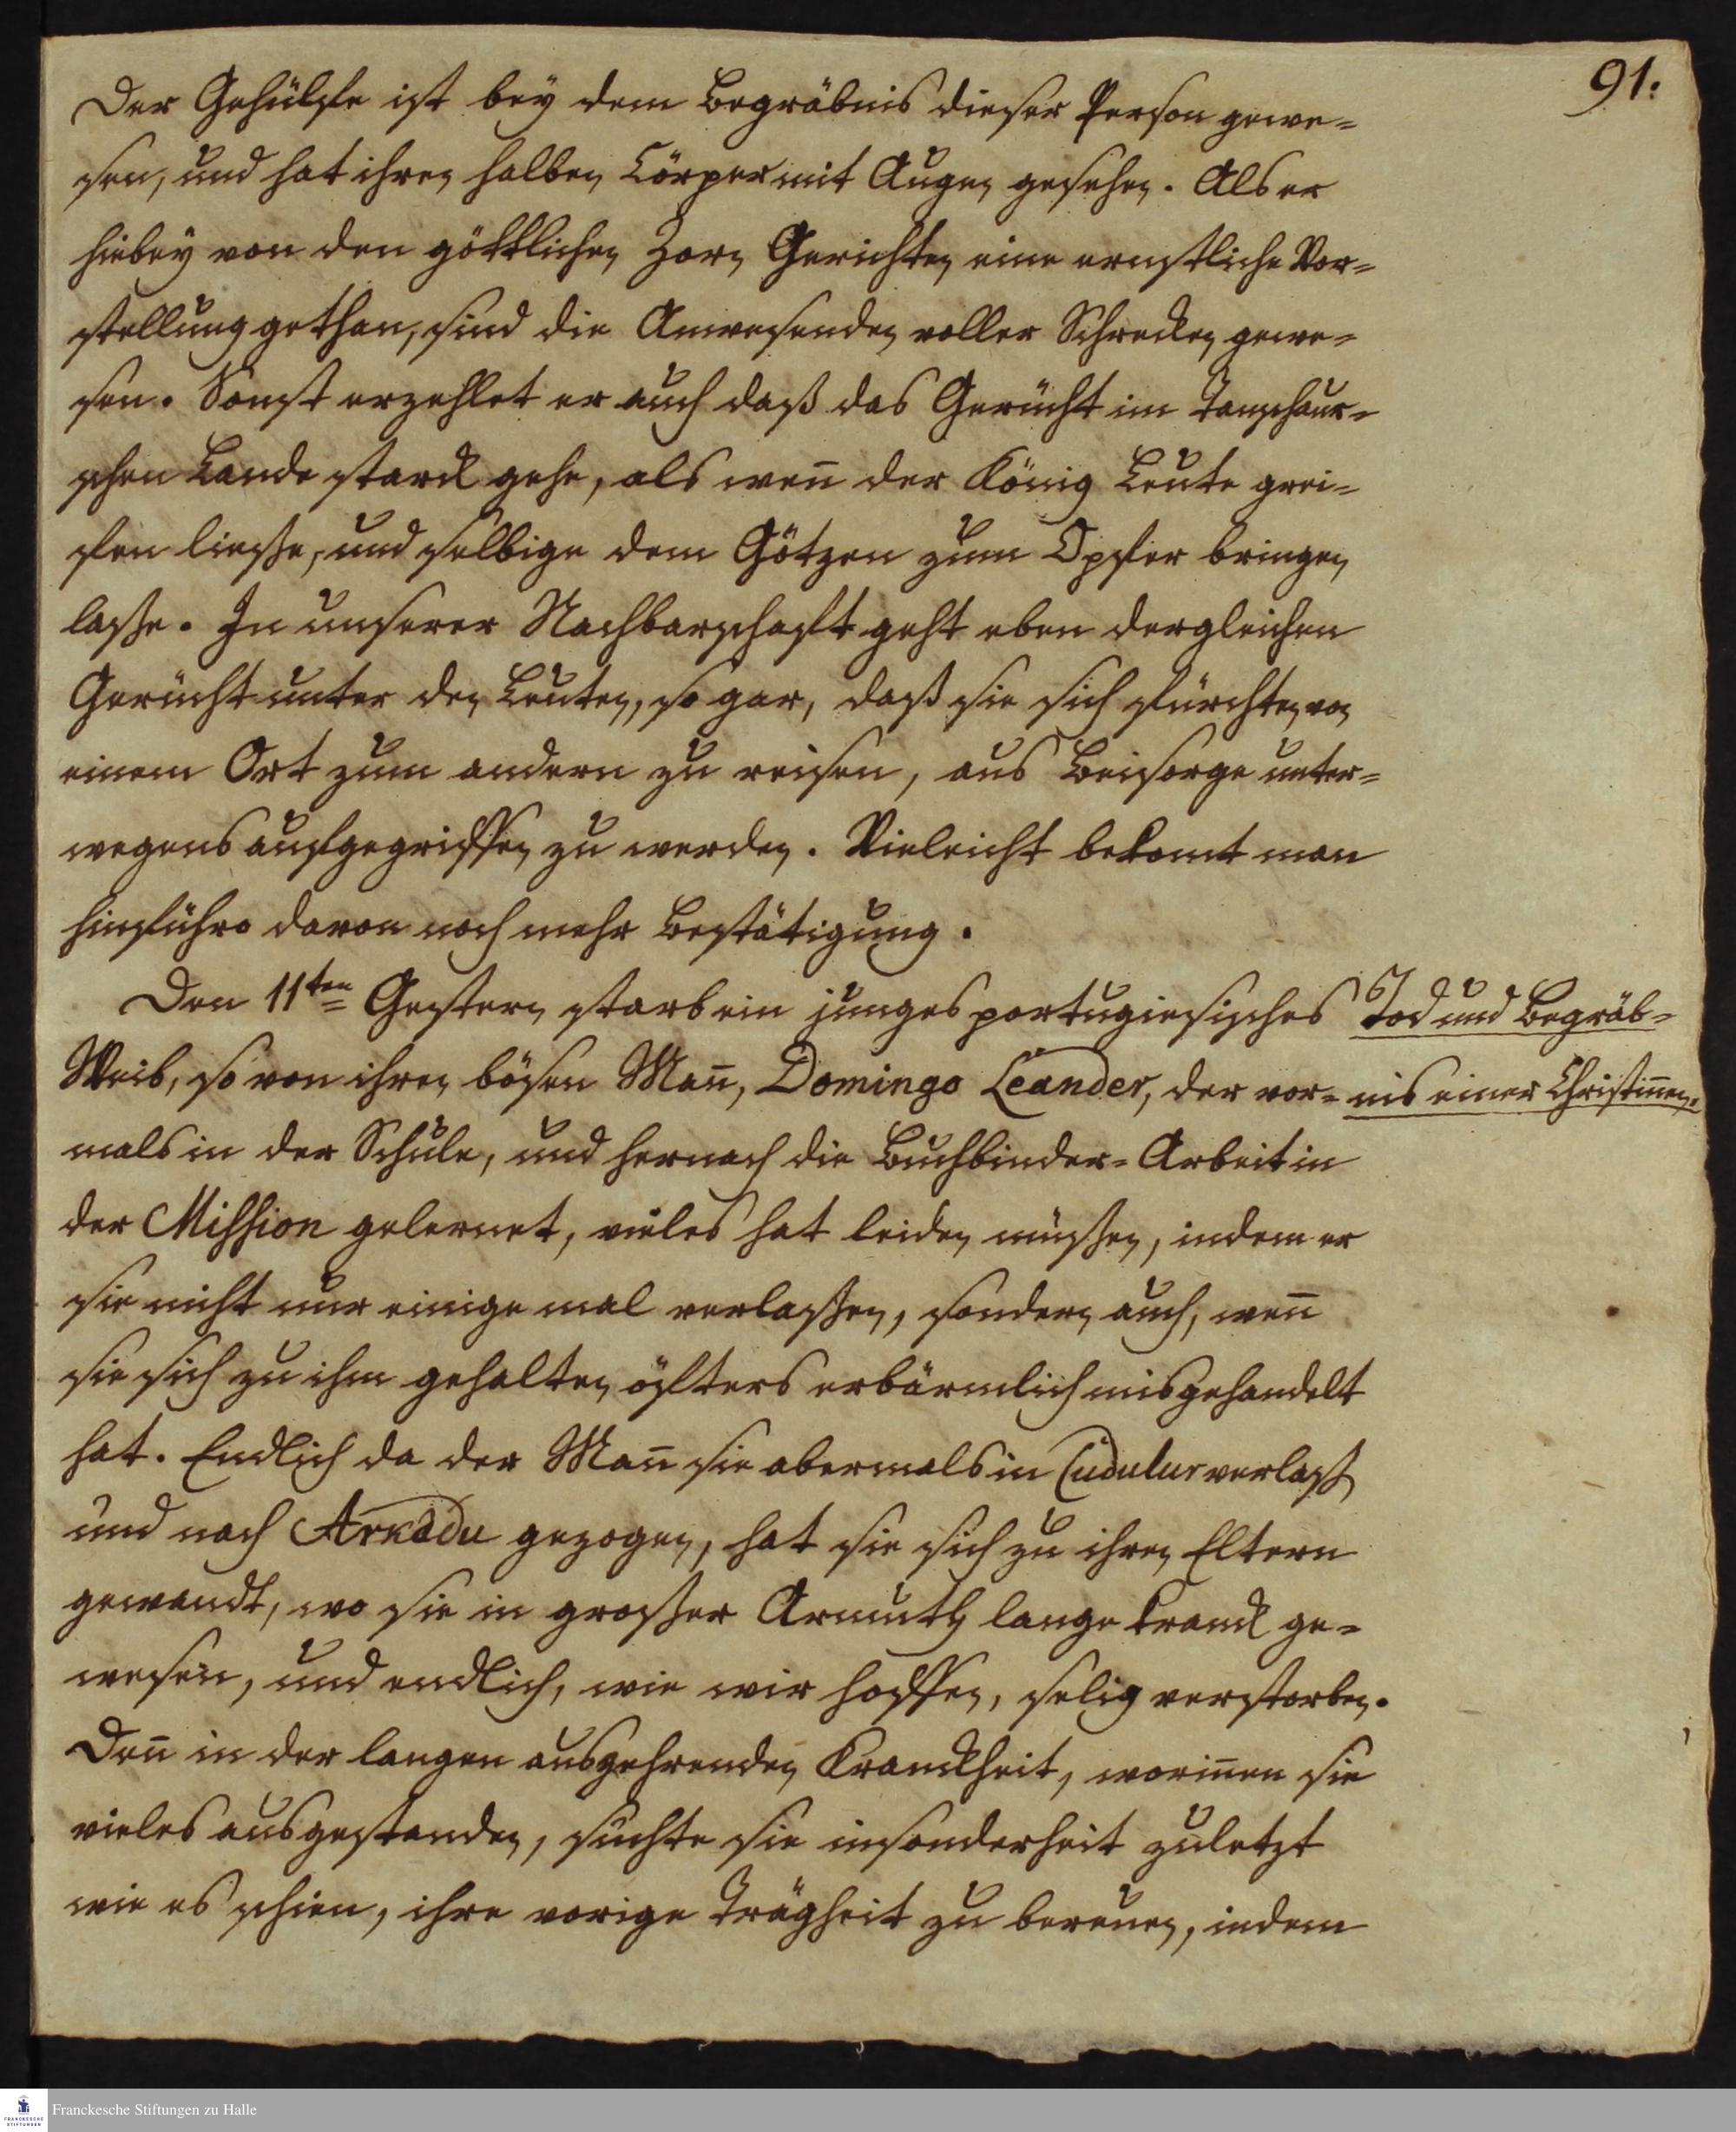 91.
Der Gehülfe ist bey dem Begräbnis dieser Person gewe-
sen, und hat ihren halben Cörper mit Augen gesehen. Als er
hiebey von den göttlichen Zorn Gerichten eine ernstliche Vor-
stellung gethan, sind die Anwesenden voller Schrecken gewe-
sen. Sonst erzehlet er auch daß das Gerücht im Tanschaur-
schen Lande starck gehe, als weñ der König Leute grei-
fen liesse, und selbige dem Götzen zum Opfer bringen
lasse. In unserer Nachbarschafft geht eben dergleichen
Gerücht unter den Leuten, so gar, daß sie sich fürchten von
einem Ort zum andern zu reisen, aus Beisorge unter-
wegens aufgegriffen zu werden. Vieleicht bekomt man
hinführo davon noch mehr Bestätigung.
Den 11ten Gestern starb ein junges portugiesisches
Weib, so von ihren bösen Mañ, Domingo Leander, der vor-
mals in der Schule, und hernach die Buchbinder-Arbeit in
der Mission gelernet, vieles hat leiden müssen, indem er
sie nicht nur einige mal verlassen, sondern auch, weñ
sie sich zu ihm gehalten öfters erbärmlich misgehandelt
hat. Endlich da der Mañ sie abermals in Cudulur verlass
und nach Arkadu gezogen, hat sie sich zu ihren Eltern
gewandt, wo sie in grosser Armuth lange kranck ge-
wesen, und endlich, wie wir hoffen, selig verstorben.
Deñ in der langen auszehrenden Kranckheit, woriñen sie
vieles ausgestanden, suchte sie insonderheit zuletzt
wie es schien, ihre vorige Trägheit zu bereuen, indem
Tod und Begräb-
nis einer Christiñen.
Franckesche Stiftungen zu Halle
FRANCKESCHE
STIFTUNGEN